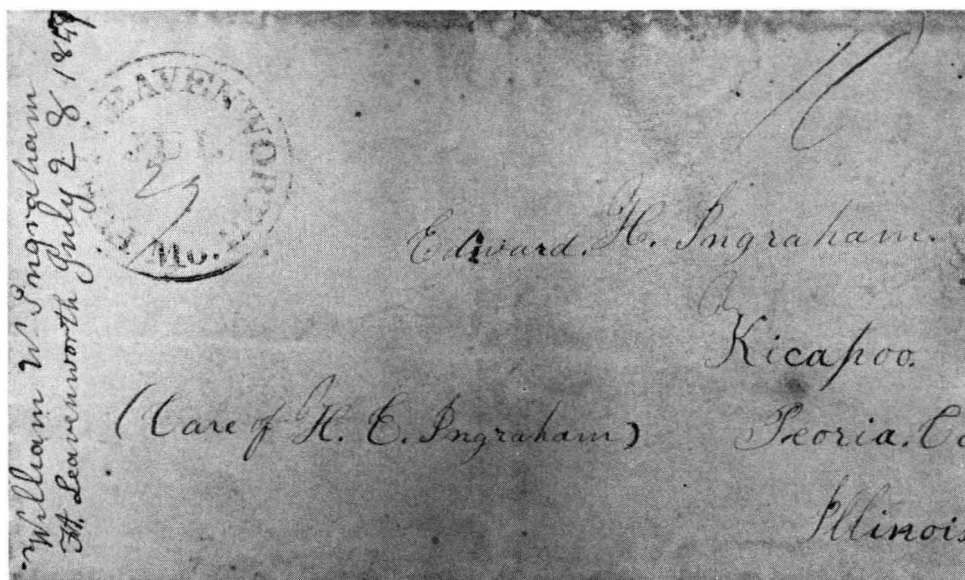 William W Ingraham
Ft. Leavenworth July 28 1849
FT. LEAVENWORTH
JUL
Mo.
10
Edward. H. Ingraham.
Kicapoo.
(Care of H. E. Ingraham)
Peoria. Co
Illinois